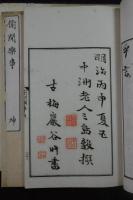 明治丙申夏五
中洲老人三島毅撰
古梅巖谷修書
偷閒樂事 坤